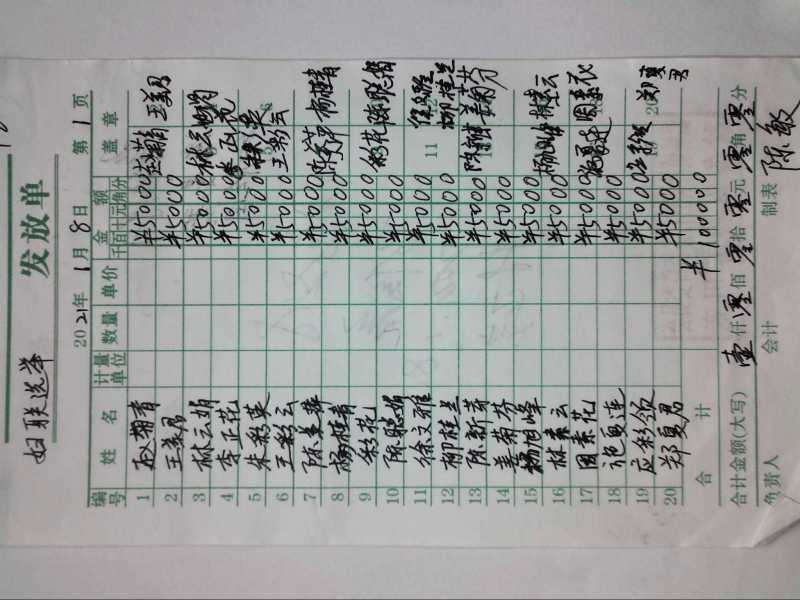 妇联选举 发放单
2021年1月8日 第1页
编号 姓名 计量单位 数量 单价 金额 盖章
千百十元角分
1 赵菊青 ¥5000
2 王美君 ¥5000 王美君
3 林云娟 ¥5000 林云娟
4 李正花 ¥5000
5 朱彩英 ¥5000 朱彩英
6 王彩云 ¥5000 王彩云
7 陈美萍 ¥5000 陈美萍
8 杨桂青 ¥5000 杨桂青
9 彩花 ¥5000 彩花
10 陈聪娟 ¥5000 陈聪娟
11 徐文雅 ¥5000 徐文雅
12 柳桂兰 ¥5000 柳桂兰
13 陈新 ¥5000 陈新
14 姜菊芬 ¥5000 姜菊芬
15 杨旭峰 ¥5000
16 林素云 ¥5000 林素云
17 周素花 ¥5000 周素花
18 ¥5000
19 应彩领 ¥5000
20 郑夏君 ¥5000 郑夏君
合计 ¥100000
合计金额(大写) 壹仟零佰零拾零元零角零分
负责人 会计 制表 陈敏